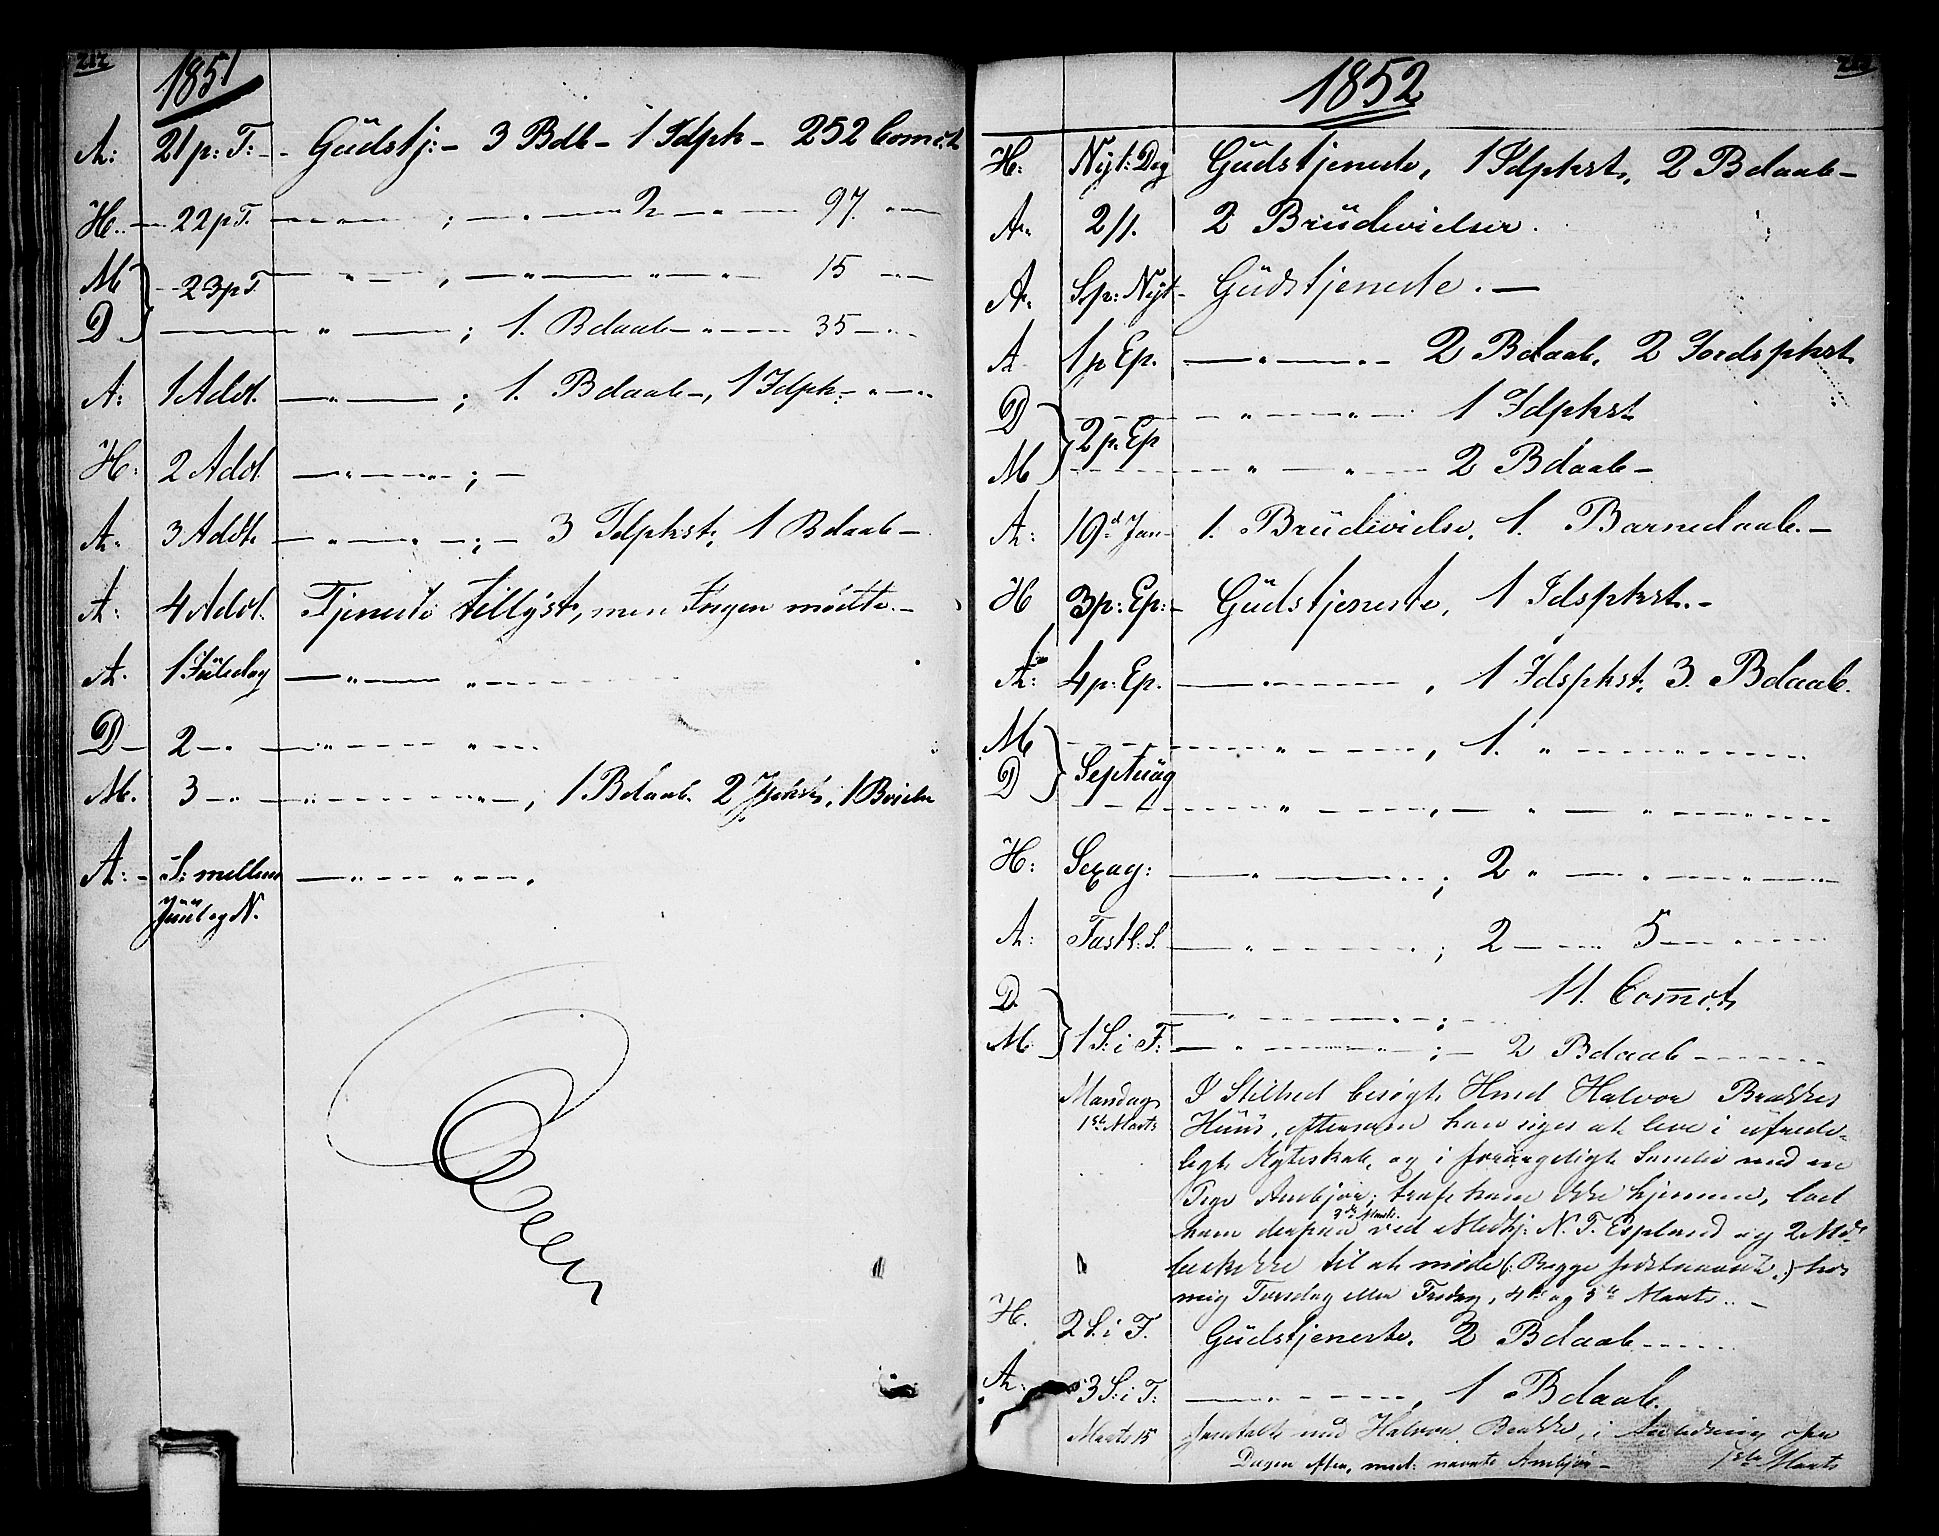 212
1851
A: 21 p: T: - Gudstj: - 3 Bdb - 1 Idpk - 252 Com:t
H. 22 p T. — " — ; — " — 2 — " — 97. " —
M 23 p T. — " — , — " — " — 15 —
D — " — ; 1. Bdaab — " — 35 — " —
A: 1 Advt. — " — ; 1. Bdaab —, 1 Idpk — " —
H: 2 Advt — " — ; —
A. 3 Advt. — " — ; — 3 Idpkst, 1 Bdaab —
A. 4 Advt. Tjeneste tillyst, men Ingen mödte. —
A. 1 Juledag — " — " —
D — 2 — " — " — " —
M. 3 — " — " — , 1 Bdaab. 2 Jpkst, 1 Bvielse
A: - S: mellem — " — " — .
Juul og N.
1852
H: Nyt: Dag Gudstjeneste, 1 Idpkst, 2 Bdaab —
A. 2/1. 2 Brudevielser.
A. S p: Nyt - Gudstjeneste. —
A 1 p Ep. — " — 2 Bdaab, 2 Jordspkst
D — " — " — 1 Idpkst
2 p. Ep
M — " — " — 2 Bdaab —
A: 19d Jan — 1. Brudevielse, 1. Barnedaab. —
H 3 p: Ep: - Gudstjeneste, 1 Idspkst. -
A: 4 p: Ep. — " — , 1 Idspkst, 3. Bdaab.
M — " — , 1. " —
D Septuag
— " — , — " — " —
H: Sexag: — " — ; 2 " — " —
A: Fastl: S. — " — ; 2 — " — 5 — " —
D. — " — ; 11. Comct
M 1 S: i F: — " — ; — 2 Bdaab —
Mandag I Stilhed besøgt Hmd Halvor Brakkes
1ste Marts Huus, eftersom han siges at leve i ufrede-
ligt Ægteskab, og i forargeligt Samliv med en
Pige Ambjør; traf ham ikke hjemme, lod
3de Marts.
ham derpaa ved Medhj: N. T. Espelund og 2 Md
beskikke til at møde (: Begge :) hos
mig Torsdag eller Fredag, 4de og 5te Marts. —
H. 2 S. i F. Gudstjeneste. 2 Bdaab —
A. 3 S: i F: — " — , 1 Bdaab.
Marts 15 Samtalte med Halvor Brakke, i Anledning ofr
1ste Marts
Dagen efter, med: nævnte Ambjør —